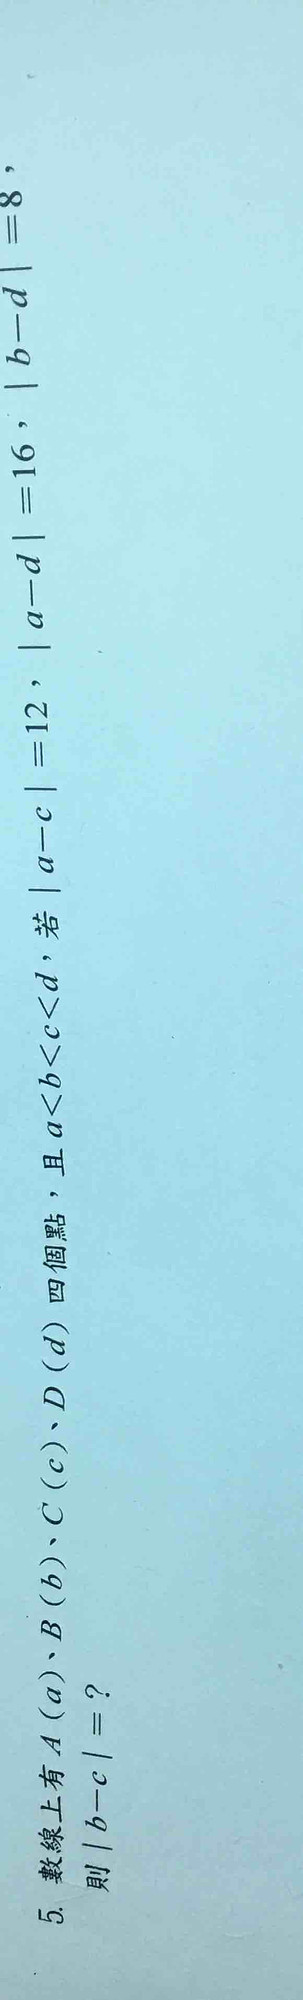 5. 數線上有 A(a)、B(b)、C(c)、D(d) 四個點，且 a<b<c<d，若 |a－c|=12，|a－d|=16，|b－d|=8，
則 |b－c|=？